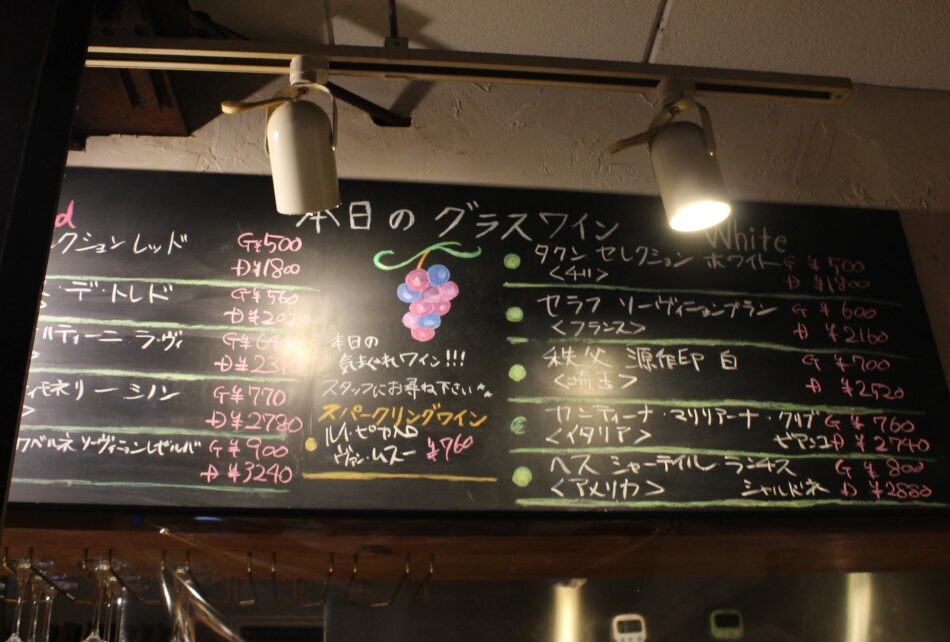 本日の グラスワイン
クション レッド G¥500
D¥1800
デ・トレド G¥560
D¥2020
ルティーニ ラ・ヴィ
モネリー シノン G¥770
D¥2780
カベルネ ソーヴィニョンレゼルバ G¥900
D¥3240
本日の
気まぐれワイン!!!
スタッフにお尋ね下さい
スパークリングワイン
ルイ・ピカメロ
ヴァン・ムスー ¥760
White
タクン セレクション ホワイト G ¥500
<チリ> D ¥1800
セラフ ソーヴィニョンブラン G ¥600
<フランス> D ¥2160
秩父 源作印 白 G ¥700
<埼玉> D ¥2520
カンティーナ・マリリアーナ・クリブ G ¥760
<イタリア> ビアンコ D ¥2740
ヘス シャーテイル ランチス G ¥800
<アメリカ> シャルドネ D ¥2880